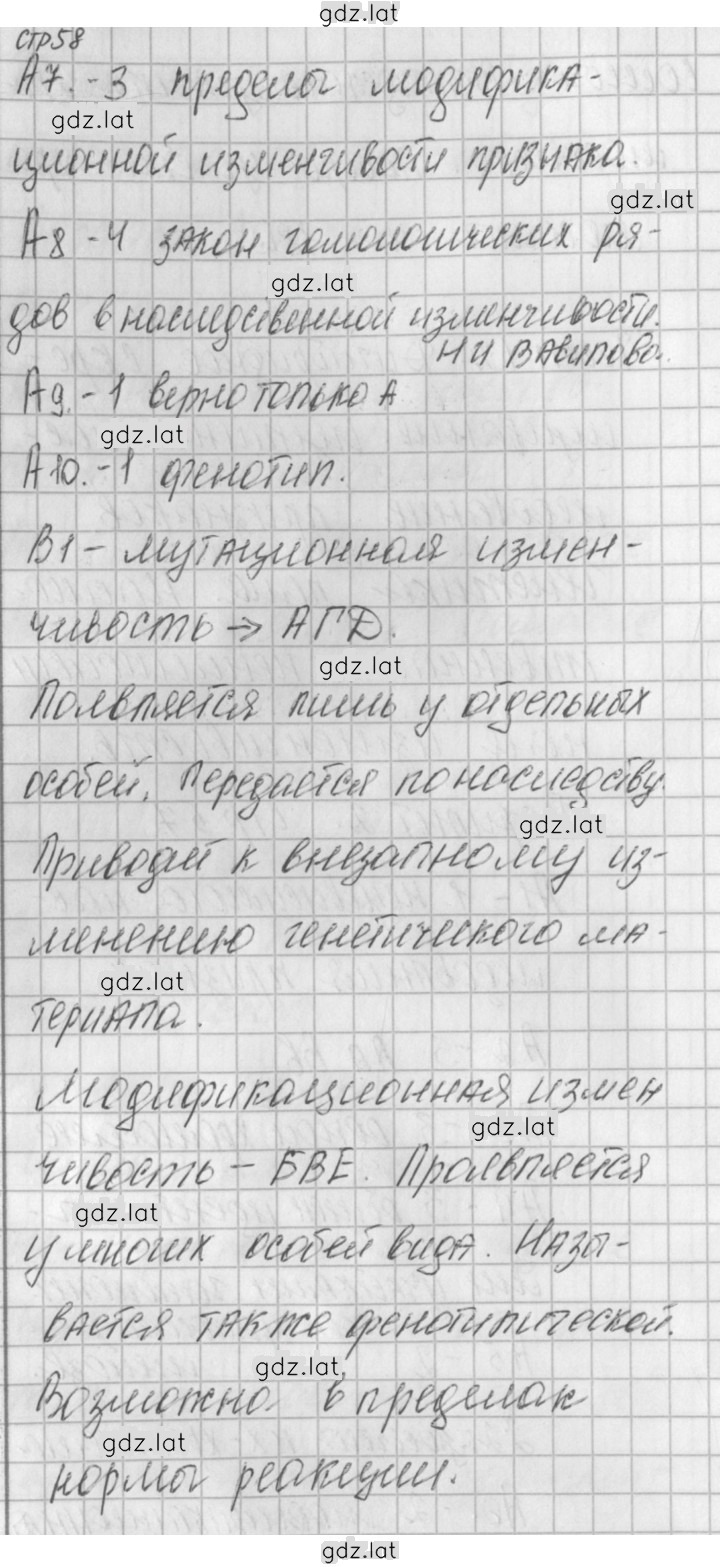 gdz.lat
стр 58
А7. - 3 пределы модифика-
gdz.lat
ционной изменчивости признака.
gdz.lat
А8 - 4 закон гомологических ря-
gdz.lat
дов в наследственной изменчивости.
Н И Вавилова.
А9. - 1 верно только А
gdz.lat
А10. - 1 фенотип.
В1 - мутационная измен-
чивость → АГД.
gdz.lat
Появляется лишь у отдельных
особей. Передается по наследству.
gdz.lat
Приводит к внезапному из-
менению генетического ма-
gdz.lat
териала.
Модификационная измен
gdz.lat
чивость - БВЕ. Проявляется
gdz.lat
у многих особей вида. Назы-
вается также фенотипической.
gdz.lat
Возможно в пределах
gdz.lat
нормы реакции.
gdz.lat